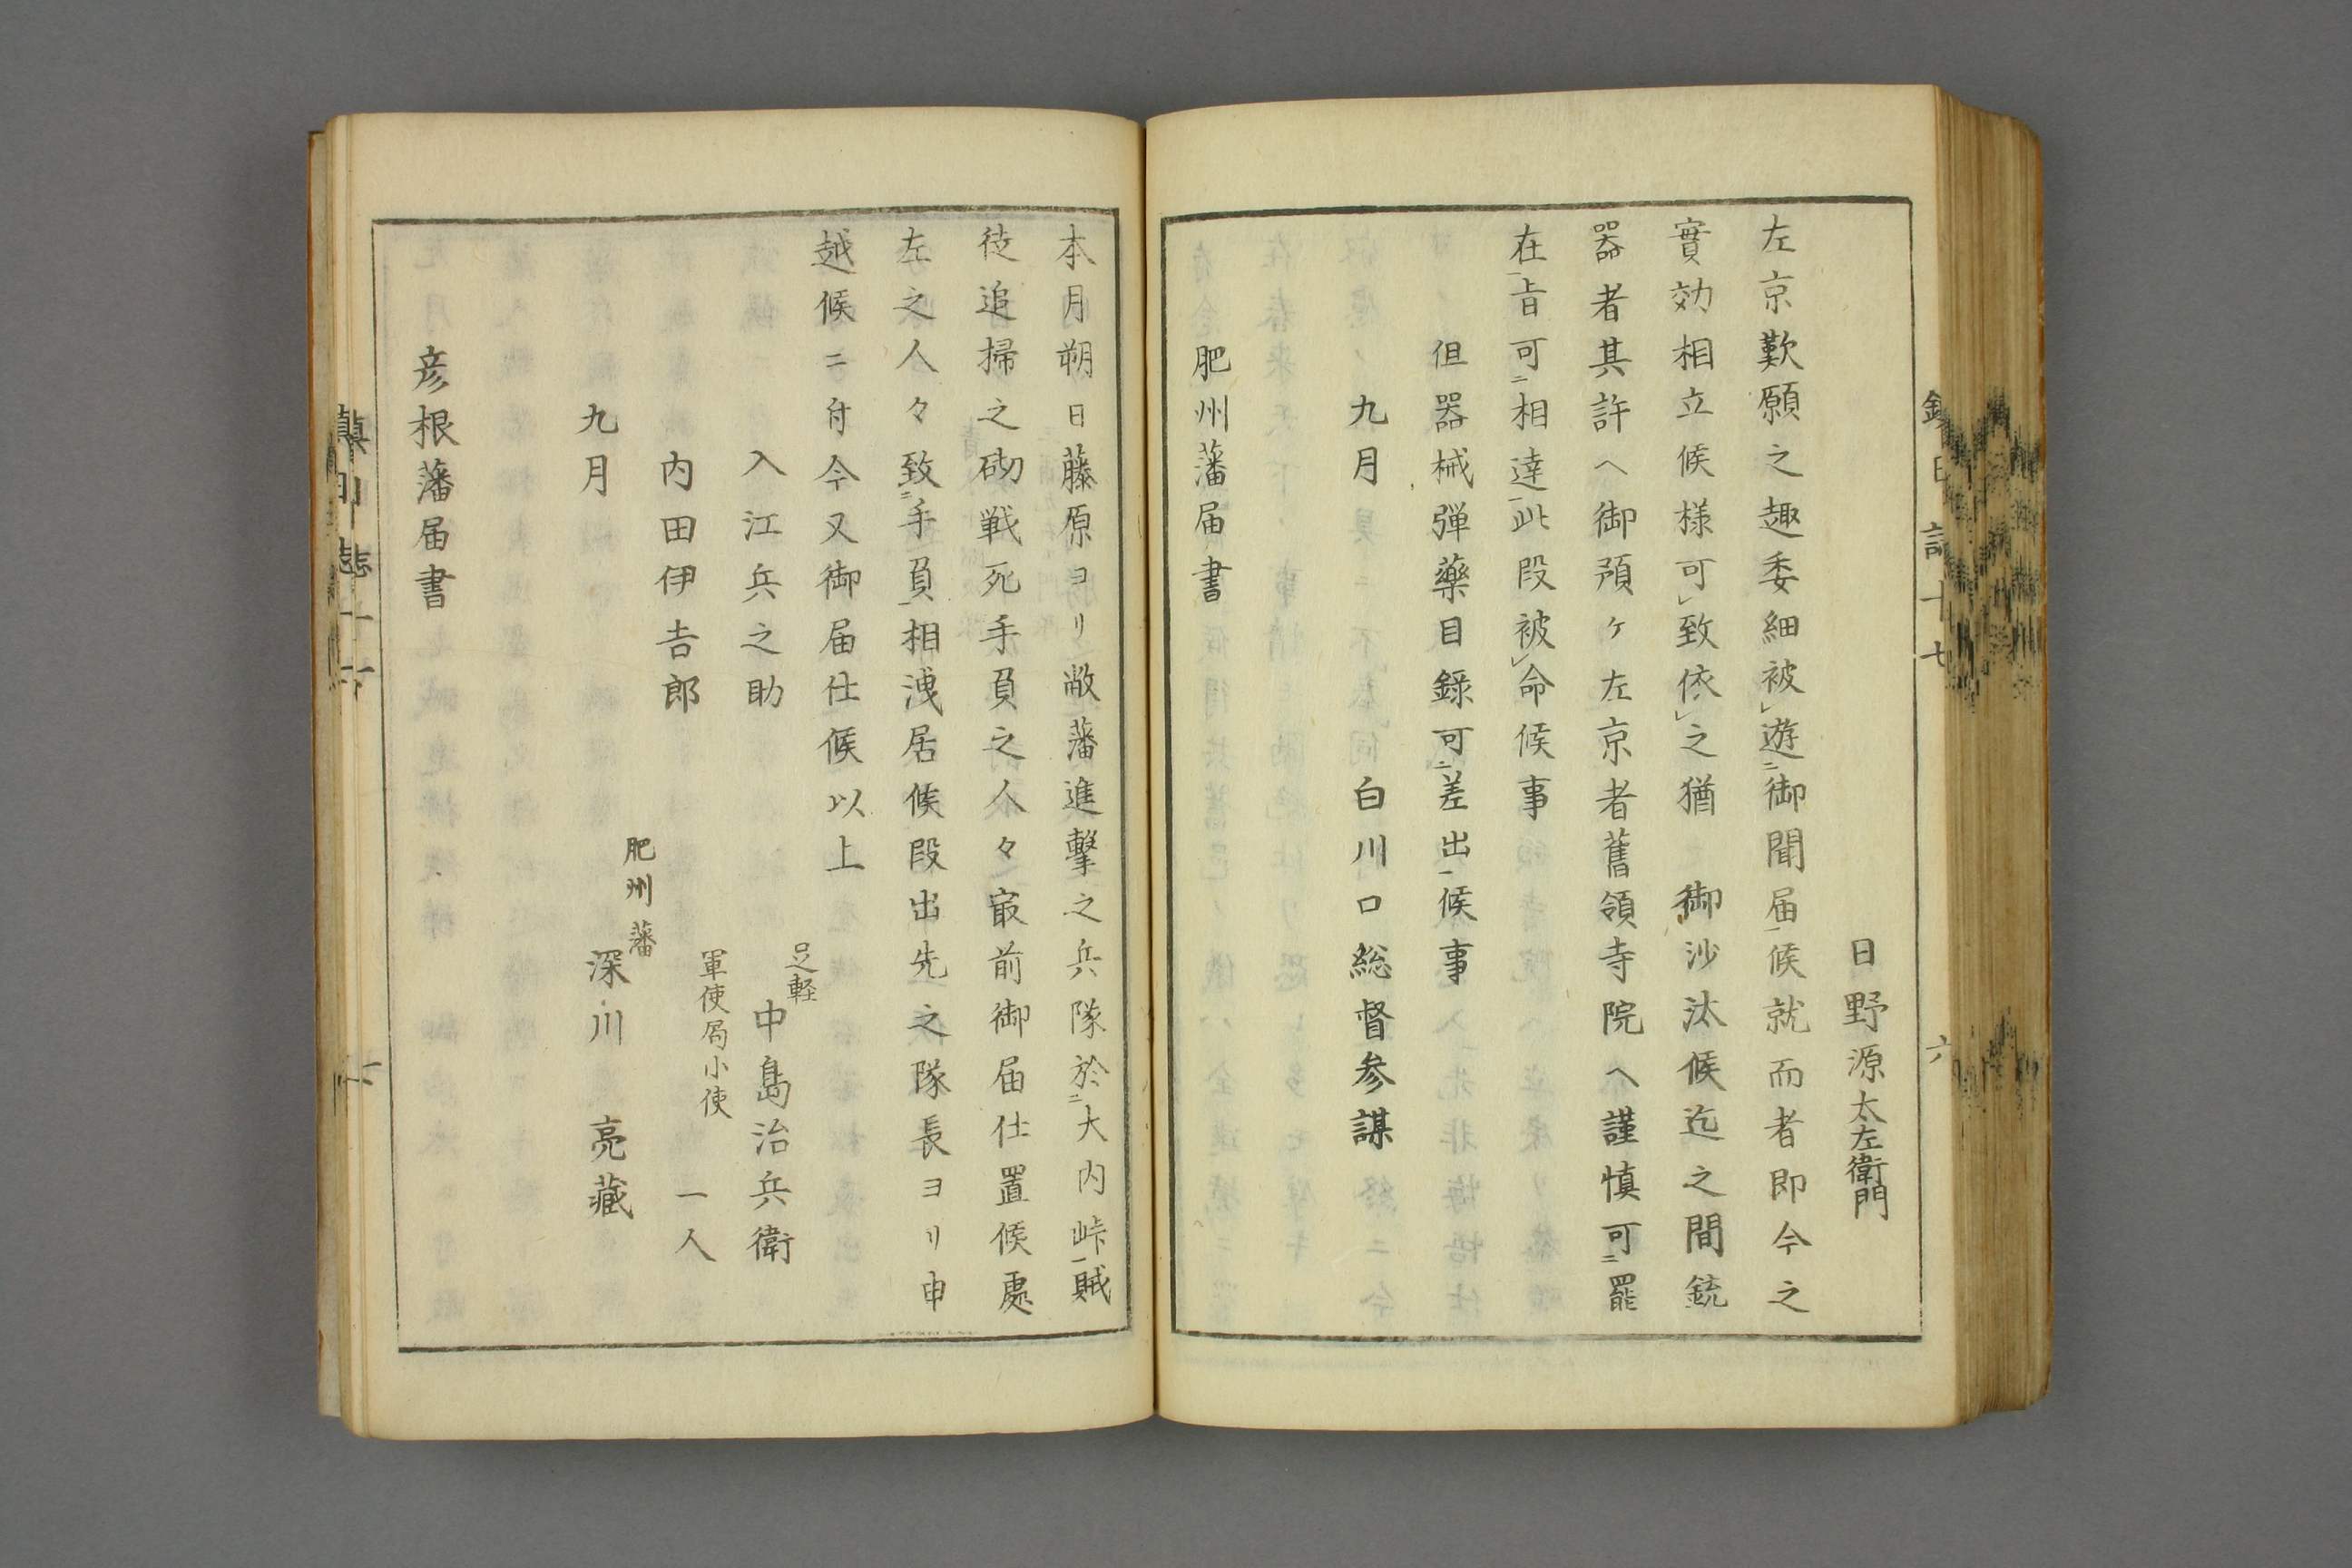 日野源太左衛門
左京歎願之趣委細被レ遊二御聞届一候就而者即今之
實効相立候様可レ致依レ之猶　御沙汰候迄之間銃
器者其許ヘ御預ケ左京者舊領寺院ヘ謹慎可二罷
在一旨可二相達一此段被レ命候事
但器械彈藥目録可二差出一候事
九月　白川口総督参謀
肥州藩届書
本月朔日藤原ヨリ敝藩進擊之兵隊於二大内峠一賊
徒追掃之砌戦死手負之人々冣前御届仕置候處
左之人々致二手負一相洩居候段出先之隊長ヨリ申
越候ニ付今又御届仕候以上
入江兵之助　足軽　中島治兵衛
内田伊吉郎　軍使局小使　一人
九月　肥州藩　深川　亮藏
彦根藩届書